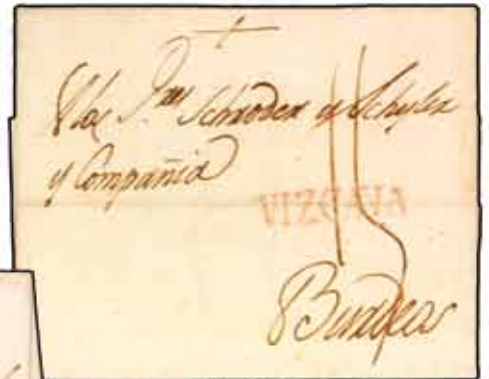 A los S.res Schroder y Schyler
y Compañia
15
VIZCAIA
Burdeos